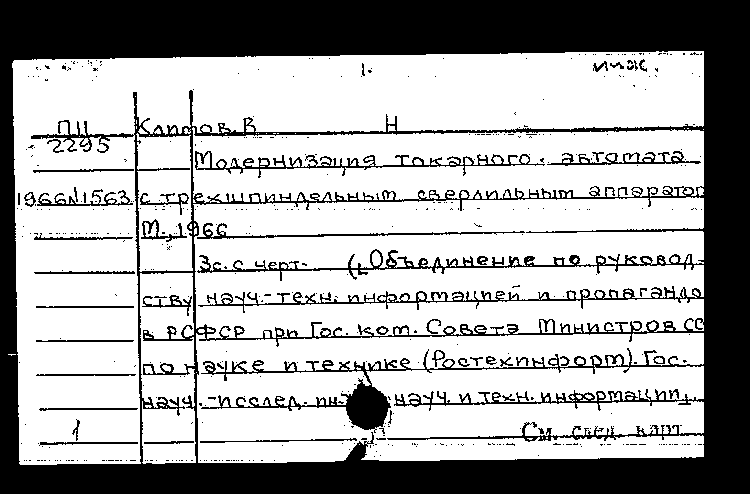 1. инж.
ПЦ Климов, В Н
2295
Модернизация токарного автомата
1966№1563 с трехшпиндельным сверлильным аппаратом
М., 1966
3с. с черт. (Объединение по руковод-
ству науч.-техн. информацией и пропаганда
в РСФСР при Гос. ком. Совета Министров СС
по науке и технике (Ростехинформ). Гос.
науч.-исслед. ин науч. и техн. информации
1 См. след. карт.